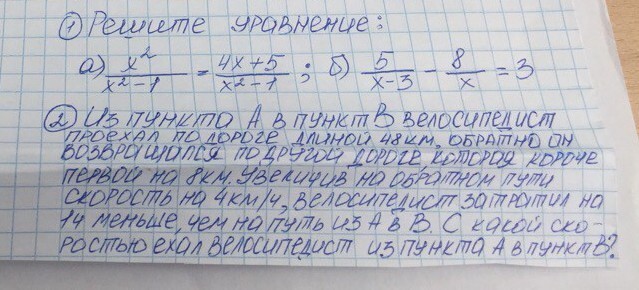 ① Решите уравнение:
а) x²/(x²-1) = (4x+5)/(x²-1) ; б) 5/(x-3) - 8/x = 3
② Из пункта А в пункт В велосипедист
проехал по дороге длиной 48км, обратно он
возвращался по другой дороге, которая короче
первой на 8км. Увеличив на обратном пути
скорость на 4км/ч, велосипедист затратил на
1ч меньше, чем на путь из А в В. С какой ско-
ростью ехал велосипедист из пункта А в пункт В?